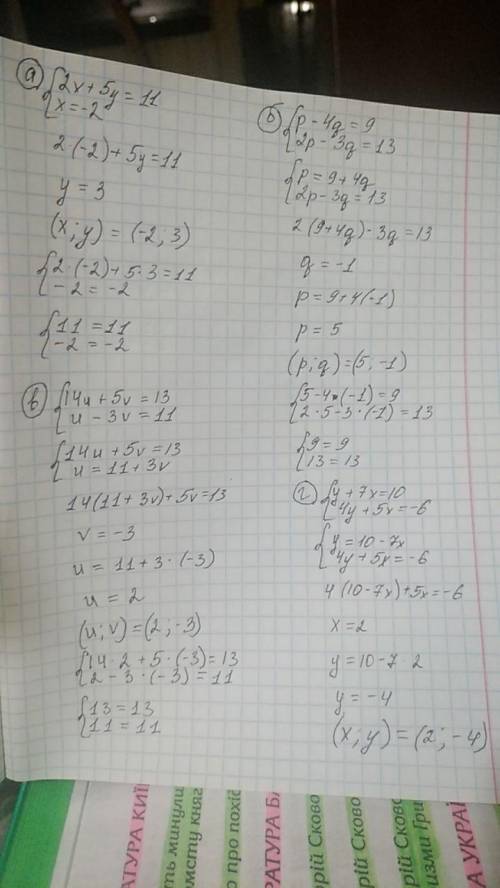 а) {2x + 5y = 11
{x = -2
2·(-2) + 5y = 11
y = 3
(x; y) = (-2; 3)
{2·(-2) + 5·3 = 11
{-2 = -2
{11 = 11
{-2 = -2
б) {p - 4q = 9
{2p - 3q = 13
{p = 9 + 4q
{2p - 3q = 13
2(9 + 4q) - 3q = 13
q = -1
p = 9 + 4(-1)
p = 5
(p; q) = (5; -1)
{5 - 4·(-1) = 9
{2·5 - 3·(-1) = 13
{9 = 9
{13 = 13
в) {14u + 5v = 13
{u - 3v = 11
{14u + 5v = 13
{u = 11 + 3v
14(11 + 3v) + 5v = 13
v = -3
u = 11 + 3·(-3)
u = 2
(u; v) = (2; -3)
{14·2 + 5·(-3) = 13
{2 - 3·(-3) = 11
{13 = 13
{11 = 11
г) {y + 7x = 10
{4y + 5x = -6
{y = 10 - 7x
{4y + 5x = -6
4(10 - 7x) + 5x = -6
x = 2
y = 10 - 7·2
y = -4
(x; y) = (2; -4)
РАТУРА КИЇ
ть минули
омсту княг
о про похід
РАТУРА БА
рій Сково
рій Сково
рій Сково
изми Гри
А УКРАЇ